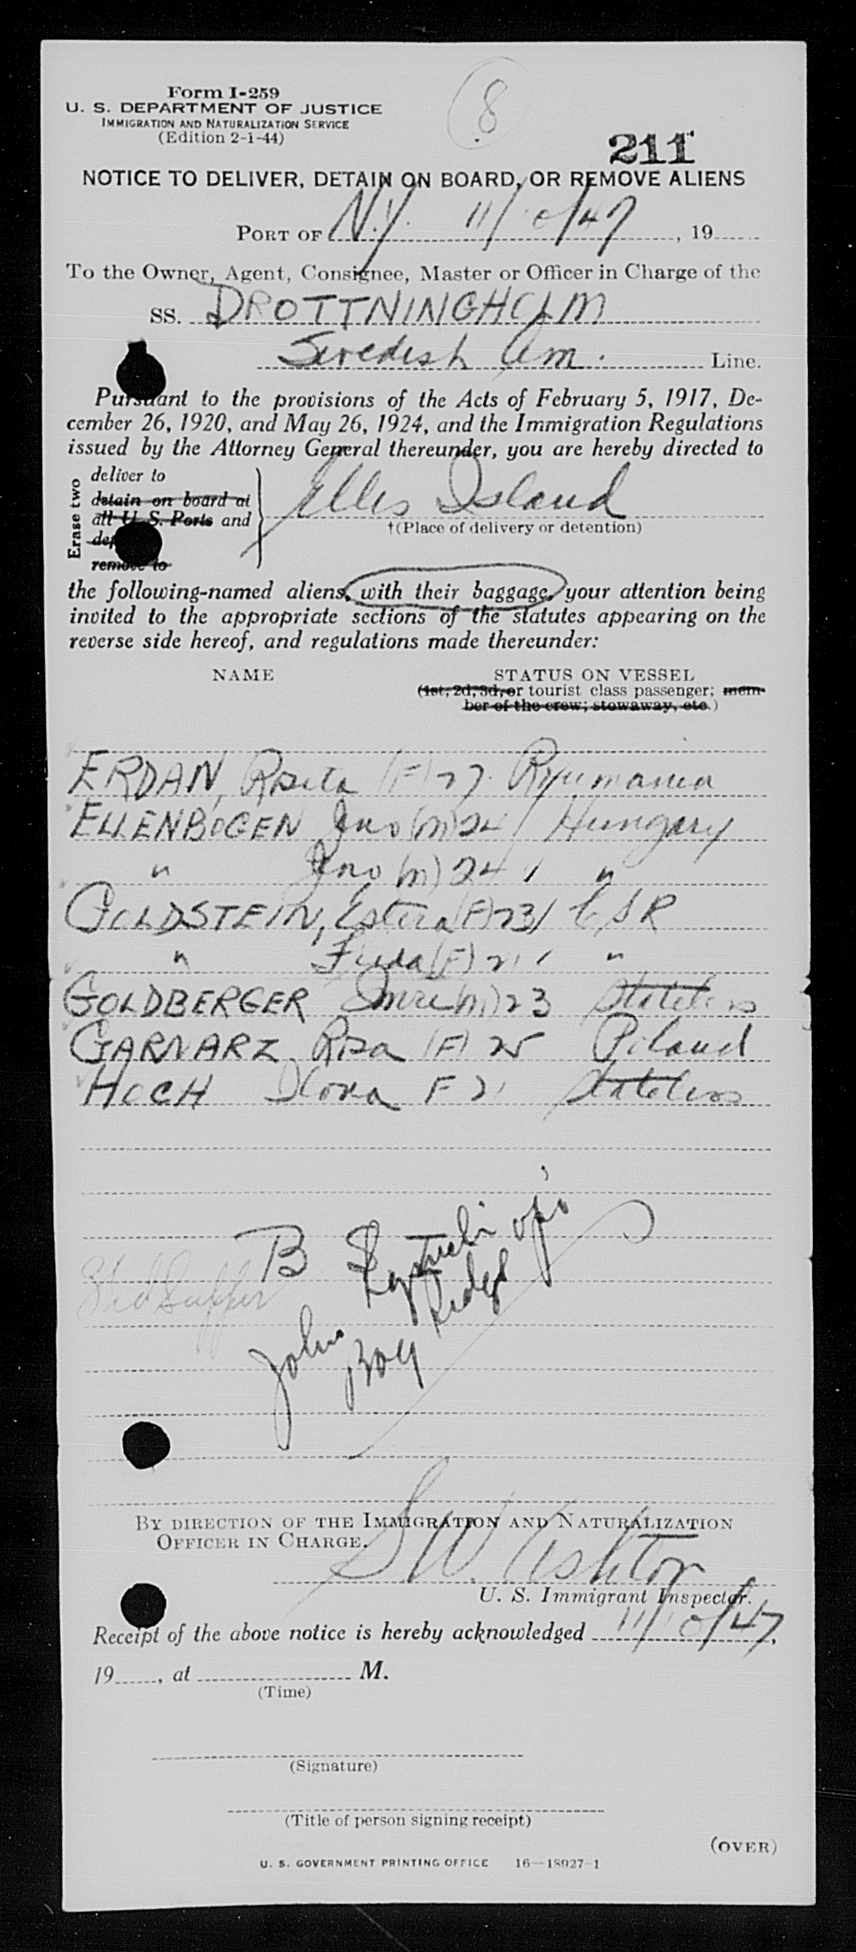 8
Form I-259
U. S. DEPARTMENT OF JUSTICE
IMMIGRATION AND NATURALIZATION SERVICE
(Edition 2-1-44)
211
NOTICE TO DELIVER, DETAIN ON BOARD, OR REMOVE ALIENS
PORT OF N.Y. 11/10/47, 19
To the Owner, Agent, Consignee, Master or Officer in Charge of the
SS. DROTTNINGHOLM
Swedish Am. Line.
Pursuant to the provisions of the Acts of February 5, 1917, De-
cember 26, 1920, and May 26, 1924, and the Immigration Regulations
issued by the Attorney General thereunder, you are hereby directed to
Erase two
deliver to
detain on board at
all U. S. Ports and
remove to
Ellis Island
†(Place of delivery or detention)
the following-named aliens, with their baggage, your attention being
invited to the appropriate sections of the statutes appearing on the
reverse side hereof, and regulations made thereunder:
NAME STATUS ON VESSEL
(1st, 2d, 3d, or tourist class passenger; mem-
ber of the crew; stowaway, etc.)
ERDAN, Rosita (F) 27 Roumania
ELLENBOGEN Jno (M) 24 Hungary
" Jno (M) 24 "
GOLDSTEIN, Estera (F) 23 CSR
" Frida (F) 21 "
GOLDBERGER Imre (M) 23 Stateless
GARNARZ Rosa (F) 25 Poland
HOCH Ilona F 21 Stateless
B
John
BY DIRECTION OF THE IMMIGRATION AND NATURALIZATION
OFFICER IN CHARGE.
S.W. Ashton
U. S. Immigrant Inspector.
Receipt of the above notice is hereby acknowledged 11/10/47,
19, at M.
(Time)
(Signature)
(Title of person signing receipt)
(OVER)
U. S. GOVERNMENT PRINTING OFFICE 16—18927-1